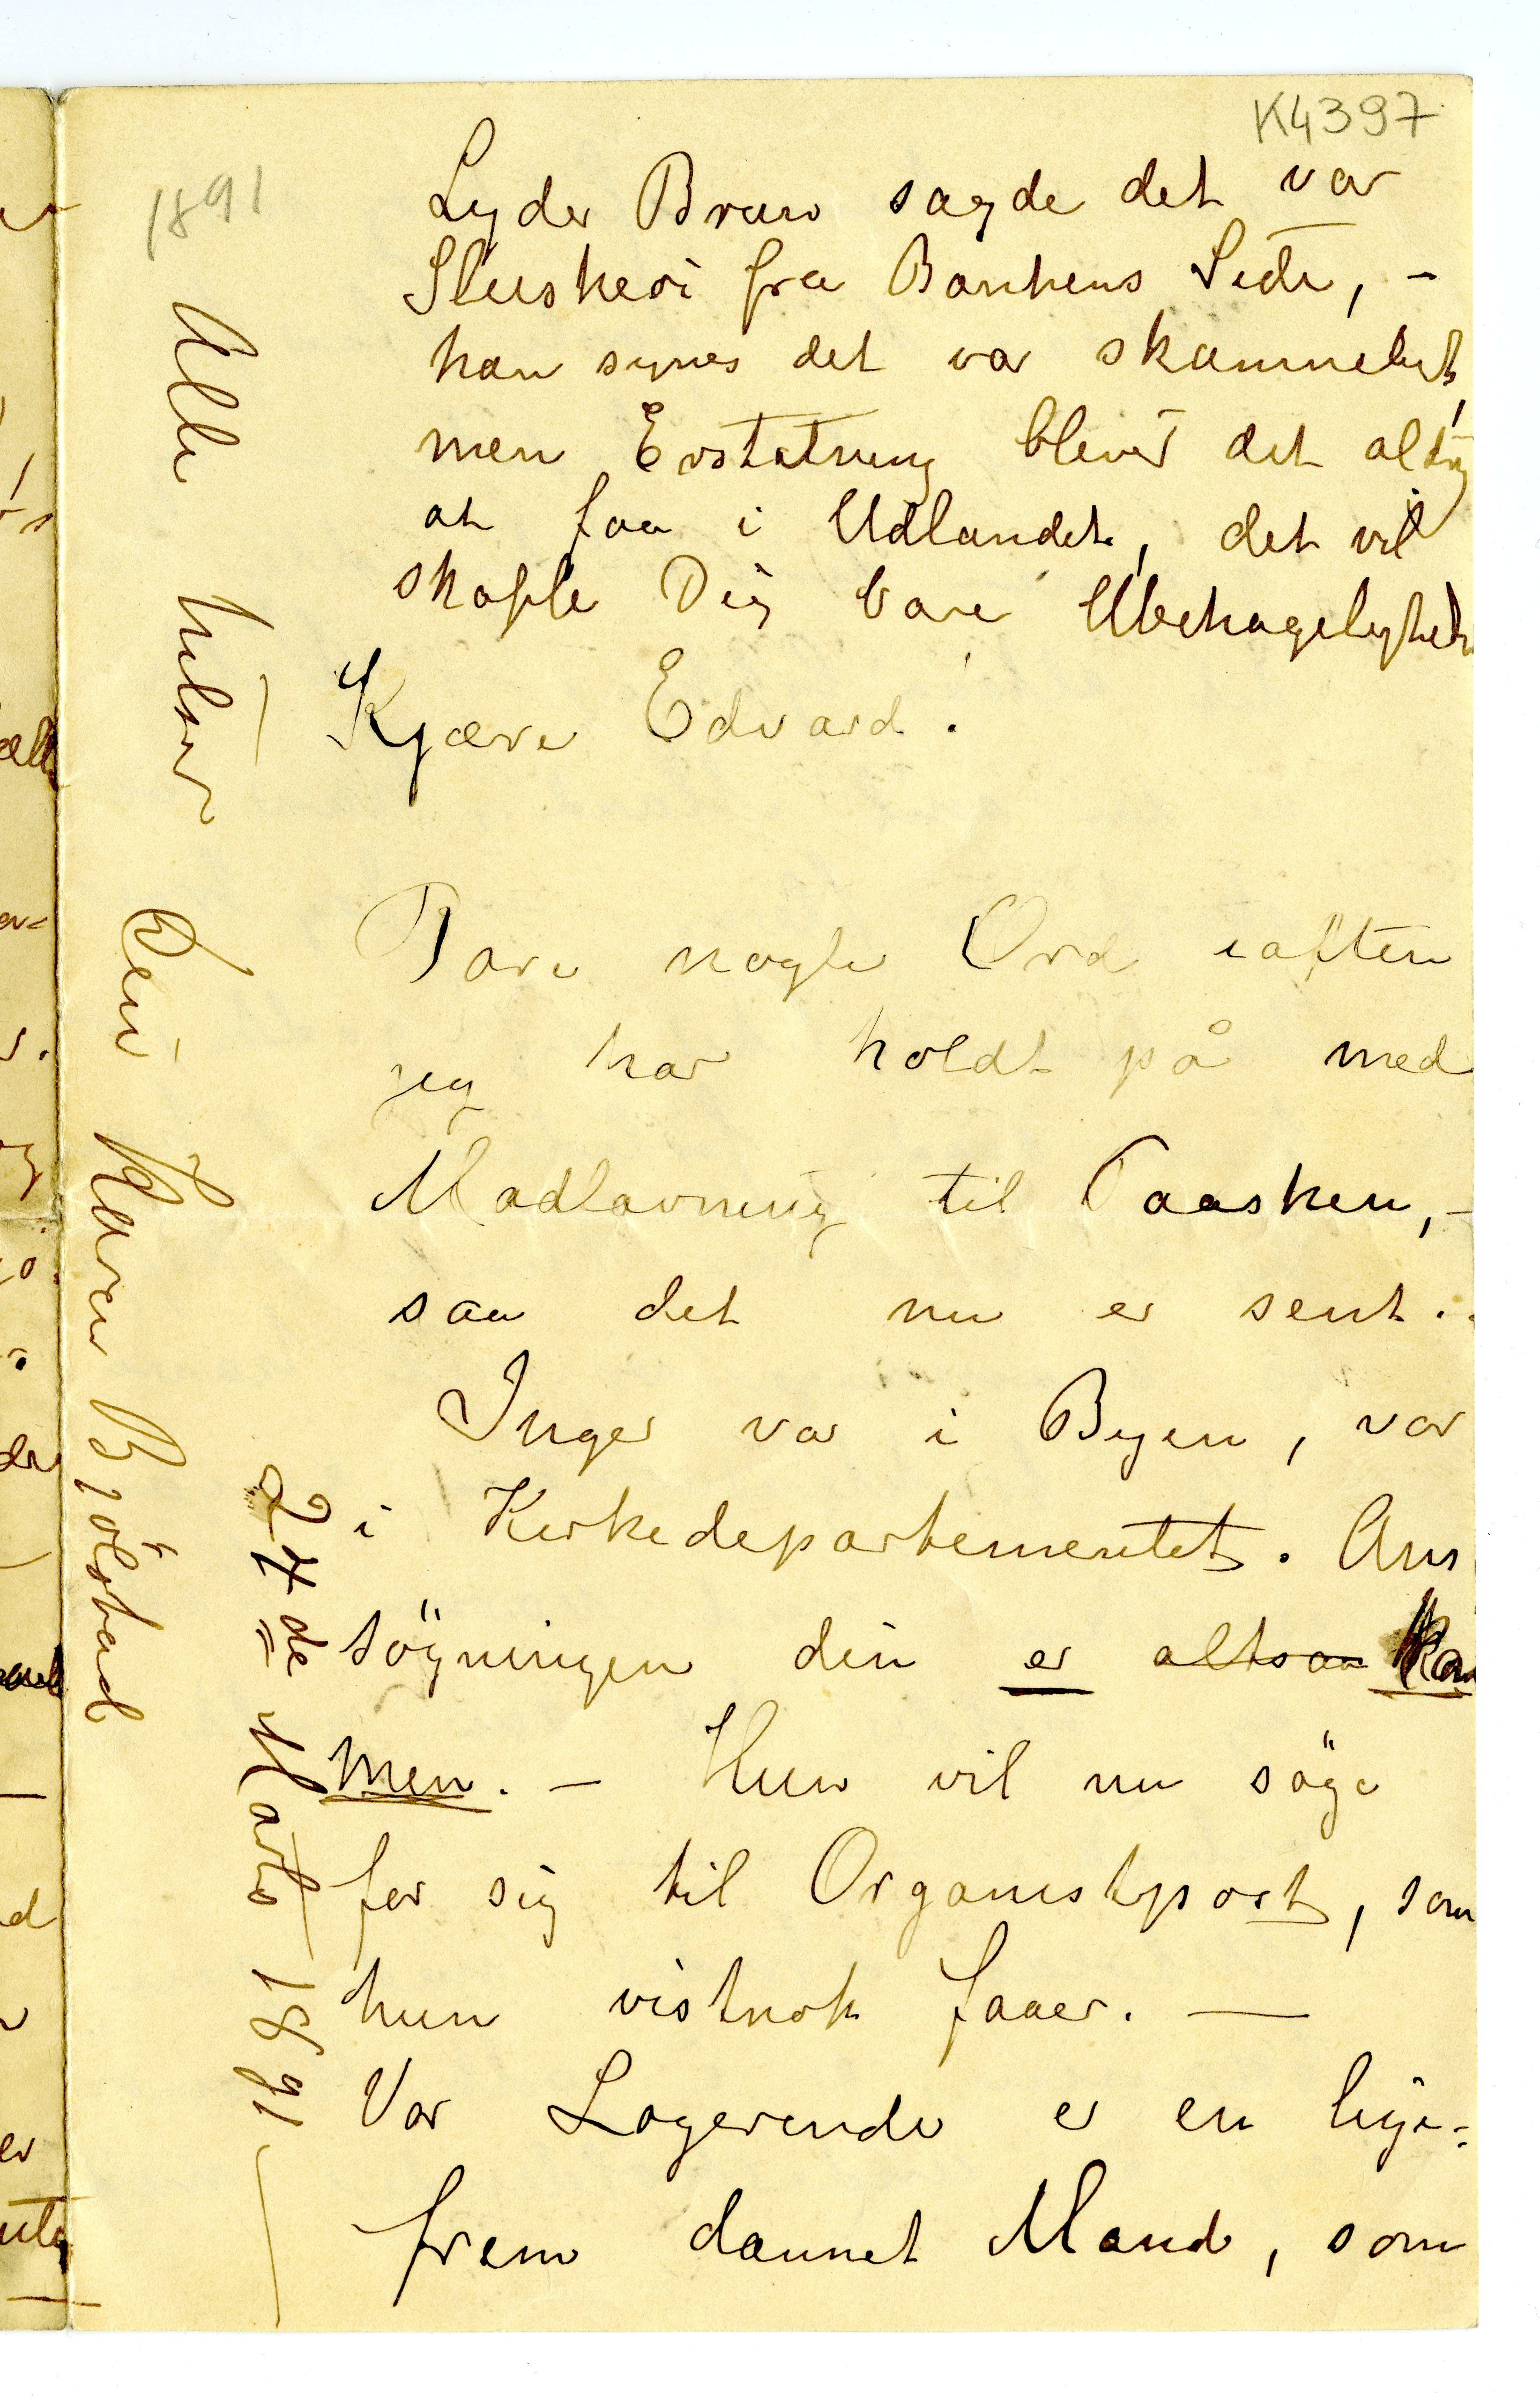 K4397
1891
Lyder Brun sagde det var
Sluskeri fra Bankens Side, –
han synes det var skammeligt,
men Erstatning bliver det aldrig
at faa i Udlandet, det vil
skaffe Dig bare Ubehageligheder
Kjære Edvard!
Bare nogle Ord iaften
jeg har holdt på med
Madlavning til Paasken, –
saa det nu er sent.
Inger var i Byen, var
i Kirkedepartementet. An
søgningen din er altsaa kom
men. – Hun vil nu søge
for sig til Organistpost, som
hun vistnok faaer. —
Vor Logerende er en lige=
frem dannet Mand, som
Alle hilser
Din Karen Bjölstad
24de Marts 1891